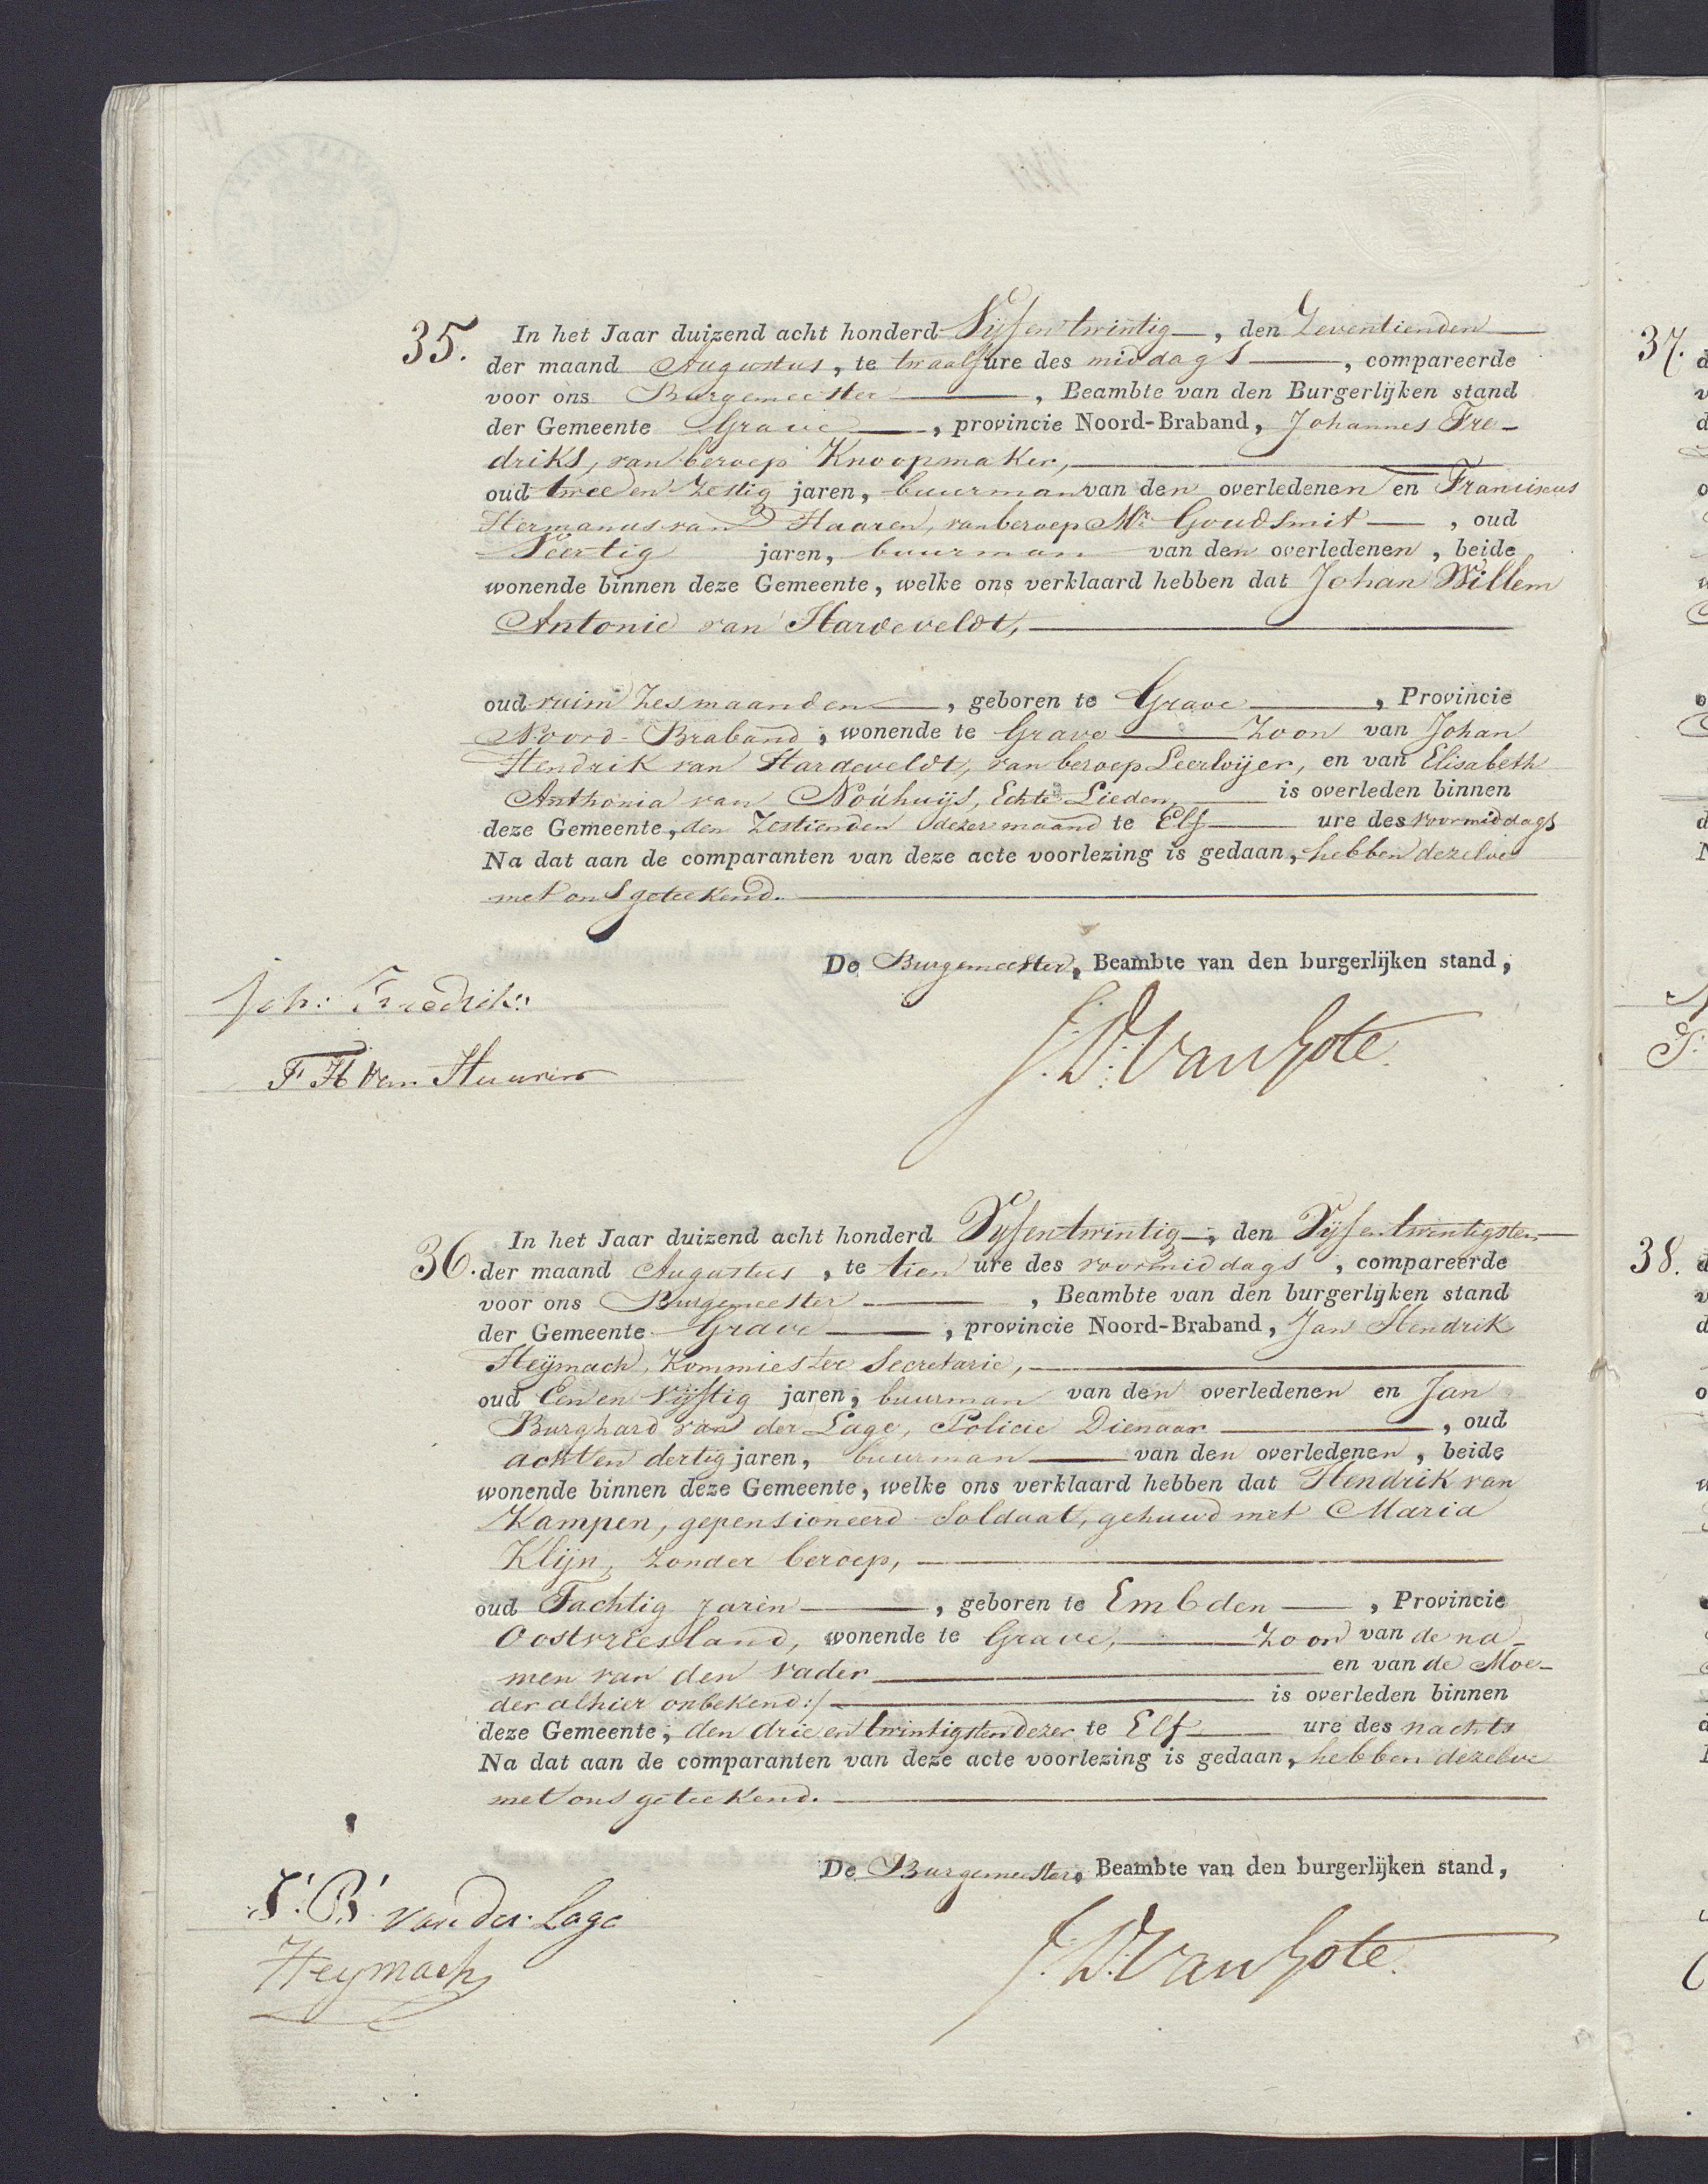 35.
In het Jaar duizend acht honderd Vijfentwintig —, den Zeventienden —
der maand Augustus, te twaalf ure des middags —, compareerde
voor ons Burgemeester —, Beambte van den Burgerlijken stand
der Gemeente Grave —, provincie Noord-Braband, Johannes Fre-
driks, van beroep Knoopmaker, —
oud twee en zestig jaren, buurman van den overledenen en Franciscus
Hermanus van Haaren, van beroep Mr. Goudsmit —, oud
Veertig jaren, buurman van den overledenen, beide
wonende binnen deze Gemeente, welke ons verklaard hebben dat Johan Willem
Antonie van Hardeveldt, —
oud ruim Zes maanden —, geboren te Grave —, Provincie
Noord-Braband, wonende te Grave — Zoon van Johan
Hendrik van Hardeveldt, van beroep Leerloijer, en van Elisabeth
Anthonia van Nouhuijs, Echte Lieden, — is overleden binnen
deze Gemeente, den Zestienden dezer maand te Elf — ure des voormiddags
Na dat aan de comparanten van deze acte voorlezing is gedaan, hebben dezelve
met ons geteekend. —
De Burgemeester, Beambte van den burgerlijken stand,
Joh: Fredriks
F H van Haaren
J. D. Van Gote
36.
In het Jaar duizend acht honderd Vijfentwintig —, den Vijfentwintigsten —
der maand Augustus, te tien ure des voormiddags, compareerde
voor ons Burgemeester —, Beambte van den burgerlijken stand
der Gemeente Grave —, provincie Noord-Braband, Jan Hendrik
Heijmach, Kommies ter Secretarie, —
oud Een en Vijftig jaren, buurman van den overledenen en Jan
Burghard van der Lage, Policie Dienaar —, oud
acht en dertig jaren, buurman — van den overledenen, beide
wonende binnen deze Gemeente, welke ons verklaard hebben dat Hendrik van
Kampen, gepensioneerd Soldaat, gehuwd met Maria
Klijn, zonder beroep, —
oud Tachtig jaren —, geboren te Embden —, Provincie
Oostvriesland, wonende te Grave, — Zoon van de na-
men van den vader — en van de Moe-
der alhier onbekend :/ — is overleden binnen
deze Gemeente, den drie en twintigsten dezer te Elf — ure des nachts
Na dat aan de comparanten van deze acte voorlezing is gedaan, hebben dezelve
met ons geteekend. —
De Burgemeester, Beambte van den burgerlijken stand,
J. B. van der Lage
Heymach
J. D. Van Gote
37.
38.